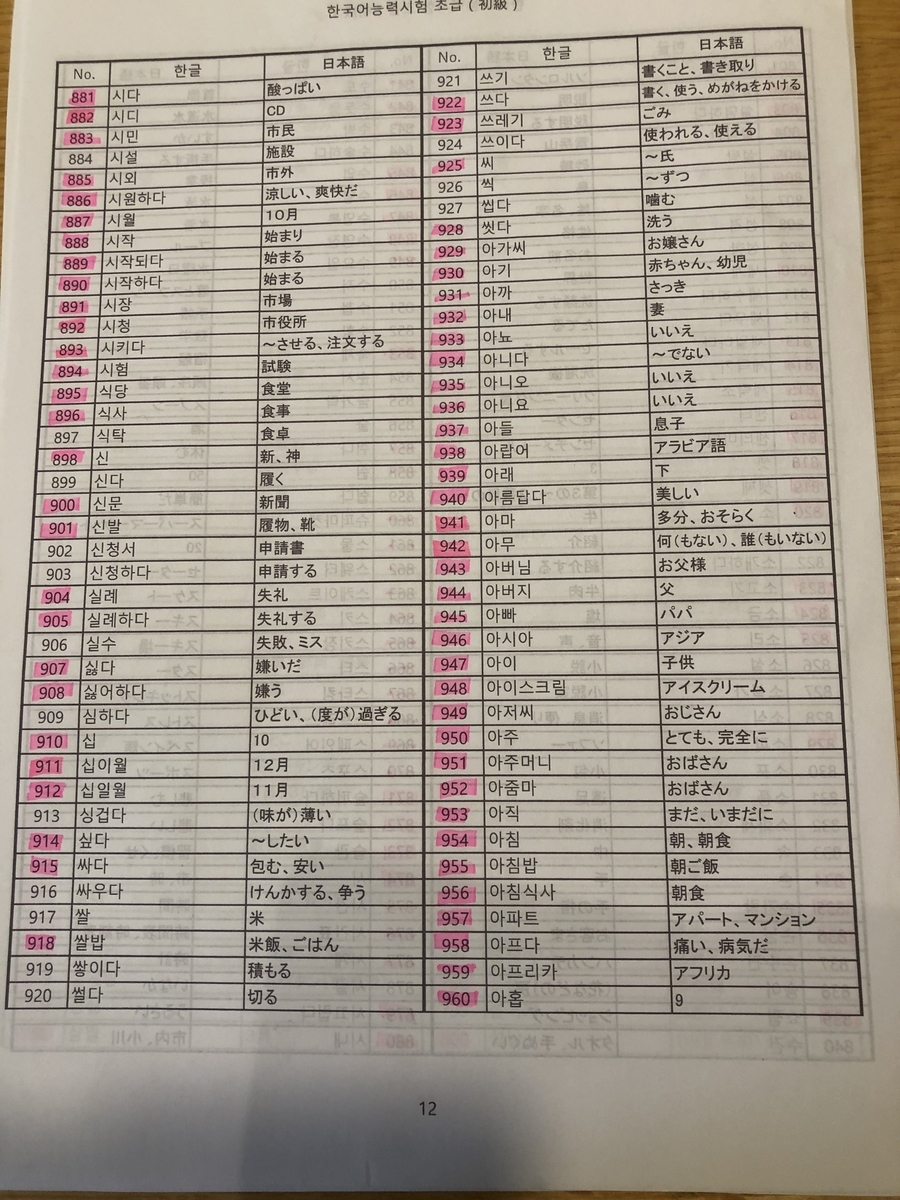 한국어능력시험 초급(初級)
No. 한글 日本語
881 시다 酸っぱい
882 시디 CD
883 시민 市民
884 시설 施設
885 시외 市外
886 시원하다 涼しい、爽快だ
887 시월 10月
888 시작 始まり
889 시작되다 始まる
890 시작하다 始まる
891 시장 市場
892 시청 市役所
893 시키다 ～させる、注文する
894 시험 試験
895 식당 食堂
896 식사 食事
897 식탁 食卓
898 신 新、神
899 신다 履く
900 신문 新聞
901 신발 履物、靴
902 신청서 申請書
903 신청하다 申請する
904 실례 失礼
905 실례하다 失礼する
906 실수 失敗、ミス
907 싫다 嫌いだ
908 싫어하다 嫌う
909 심하다 ひどい、(度が)過ぎる
910 십 10
911 십이월 12月
912 십일월 11月
913 싱겁다 (味が)薄い
914 싶다 ～したい
915 싸다 包む、安い
916 싸우다 けんかする、争う
917 쌀 米
918 쌀밥 米飯、ごはん
919 쌓이다 積もる
920 썰다 切る
No. 한글 日本語
921 쓰기 書くこと、書き取り
922 쓰다 書く、使う、めがねをかける
923 쓰레기 ごみ
924 쓰이다 使われる、使える
925 씨 ～氏
926 씩 ～ずつ
927 씹다 噛む
928 씻다 洗う
929 아가씨 お嬢さん
930 아기 赤ちゃん、幼児
931 아까 さっき
932 아내 妻
933 아뇨 いいえ
934 아니다 ～でない
935 아니오 いいえ
936 아니요 いいえ
937 아들 息子
938 아랍어 アラビア語
939 아래 下
940 아름답다 美しい
941 아마 多分、おそらく
942 아무 何(もない)、誰(もいない)
943 아버님 お父様
944 아버지 父
945 아빠 パパ
946 아시아 アジア
947 아이 子供
948 아이스크림 アイスクリーム
949 아저씨 おじさん
950 아주 とても、完全に
951 아주머니 おばさん
952 아줌마 おばさん
953 아직 まだ、いまだに
954 아침 朝、朝食
955 아침밥 朝ご飯
956 아침식사 朝食
957 아파트 アパート、マンション
958 아프다 痛い、病気だ
959 아프리카 アフリカ
960 아홉 9
12